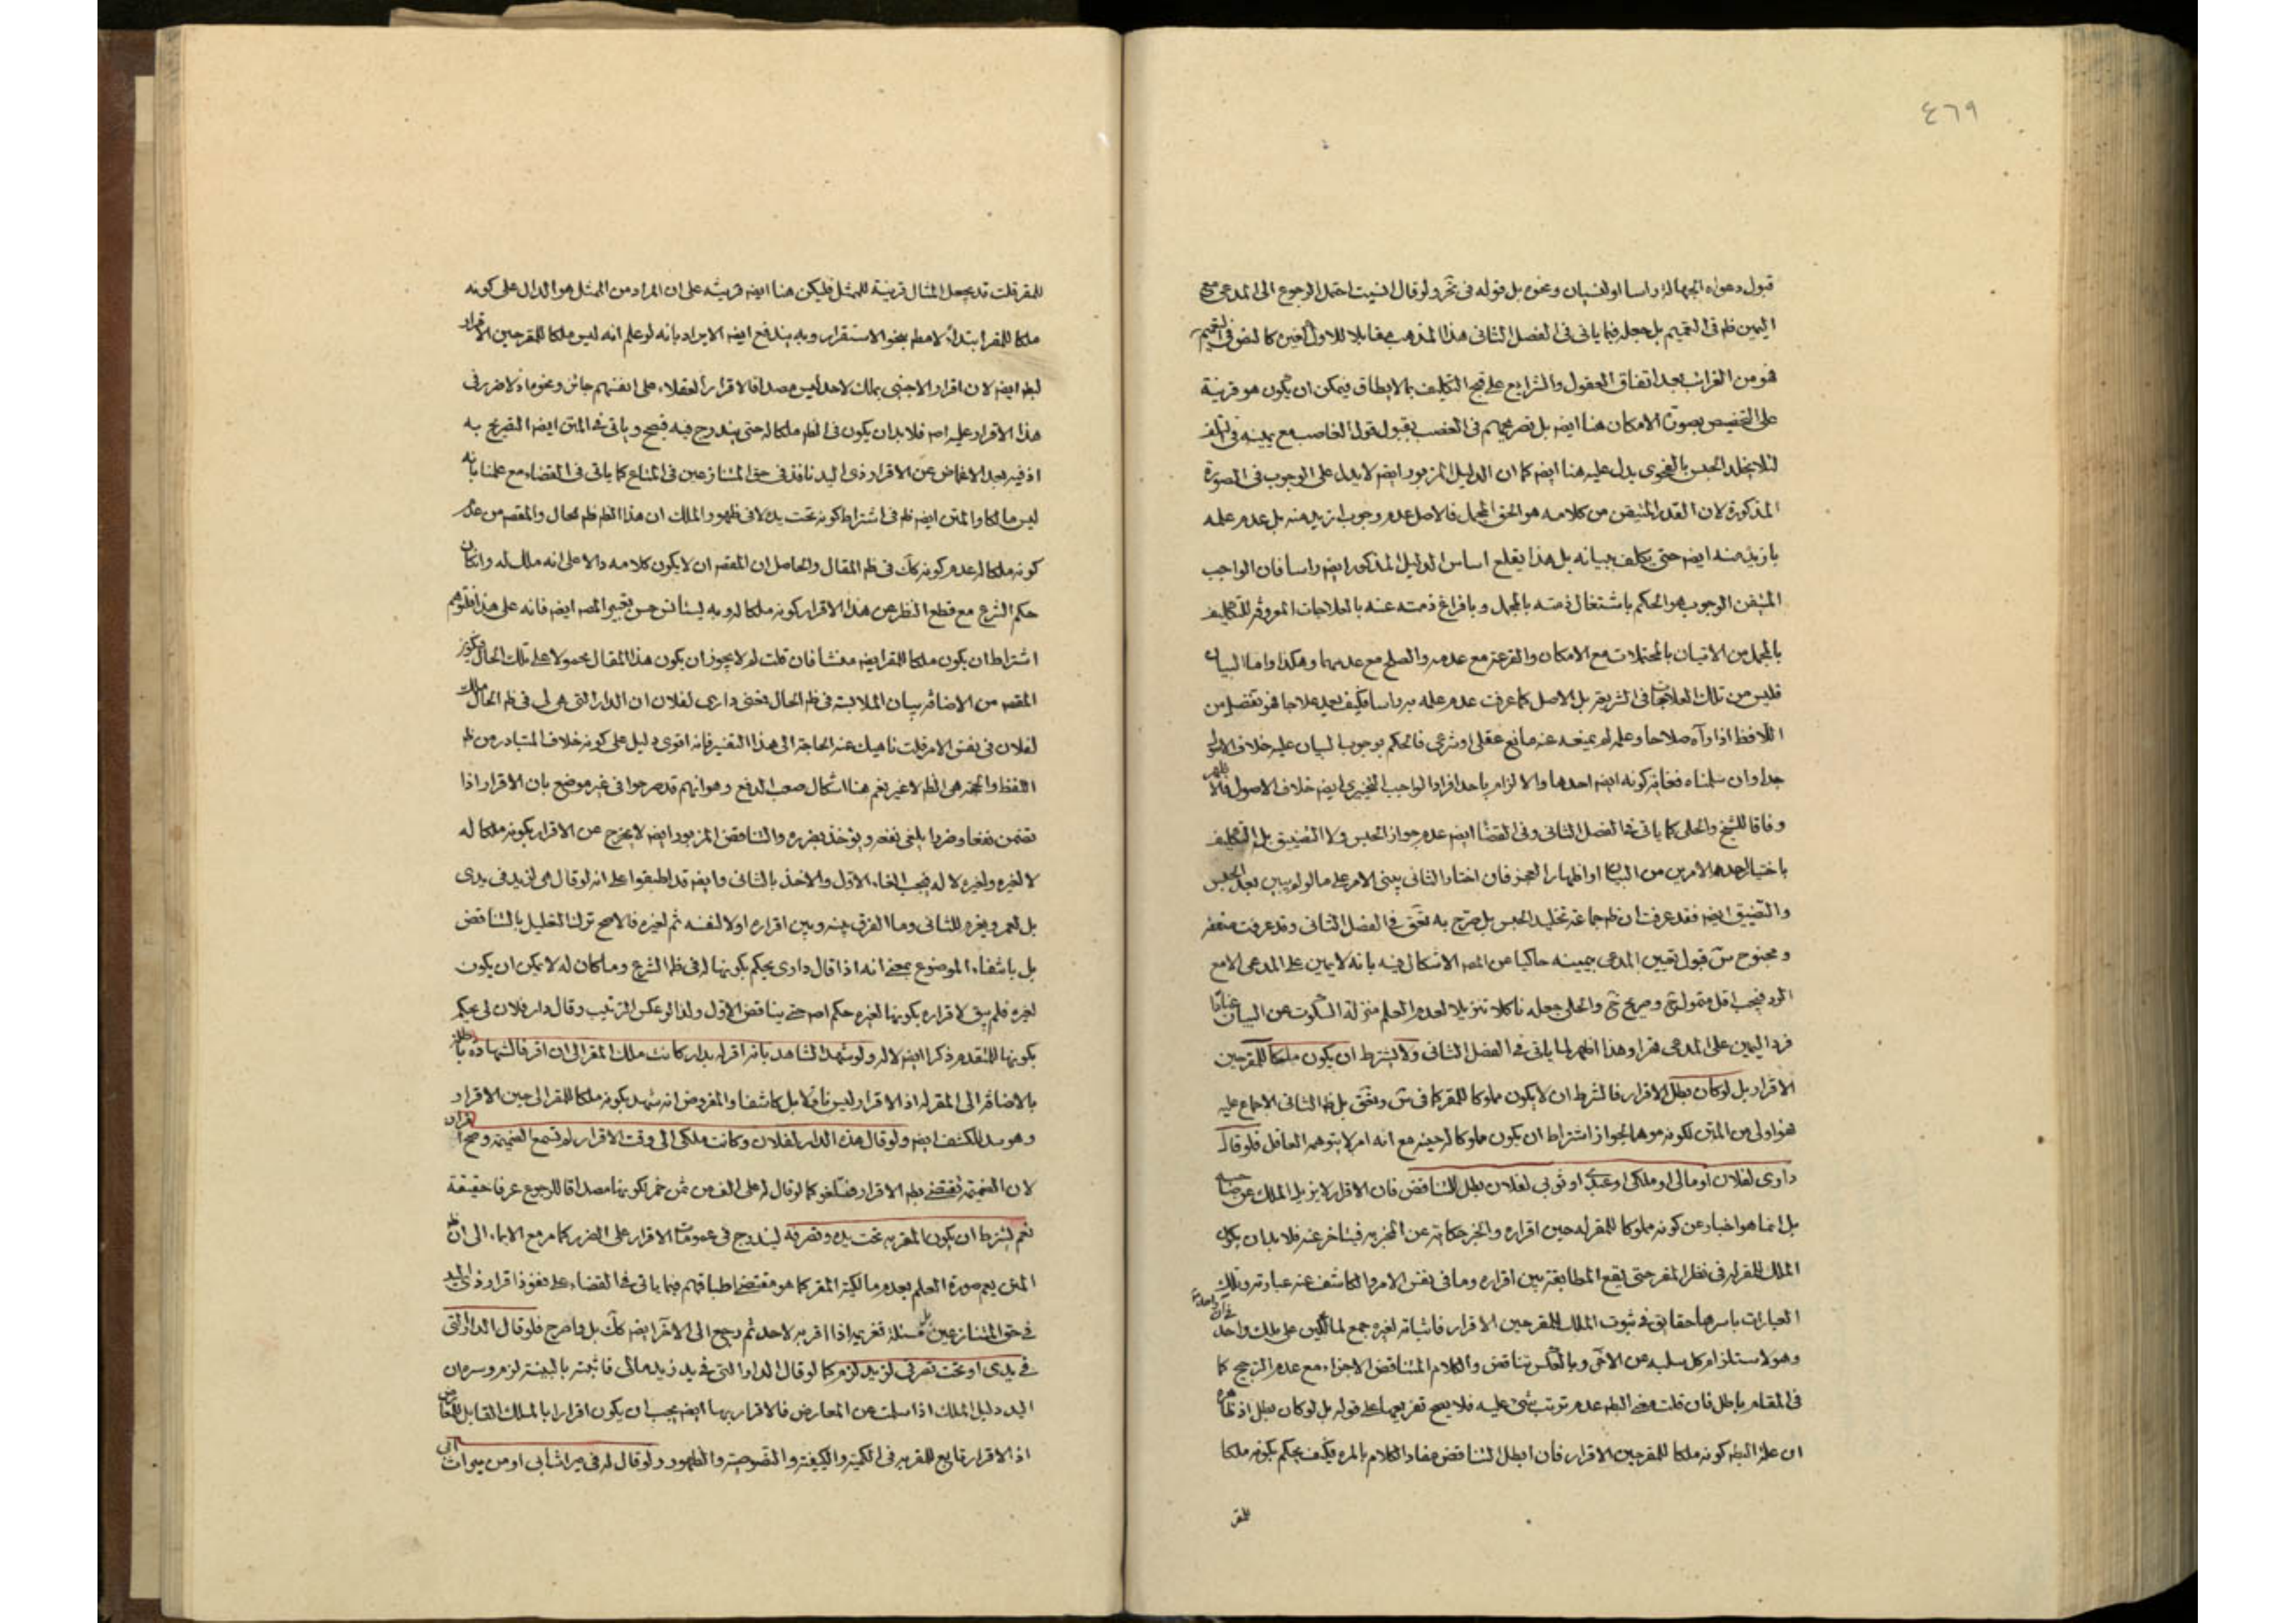 ٤٦٩
قبول دعواه الجهالة راسا او النسيان ونحوه بل قوله في ولو قال انسيت احتمل الرجوع الى المدعي مع
اليمين ظم في التعميم بل جعله فيما ياتي في الفصل الثاني هذا المذهب مقابلا للاول كالنص في التعميم
فهو من الغرائب بعد اتفاق العقول والشرايع على قبح التكليف بما لا يطاق فيمكن ان يكون هو قرينة
على التخصيص بصورة الامكان هنا ايضه بل تصريحهم في الغصب بقبول قول الغاصب مع يمينه في تلف
لئلا يخلد الحبس بالفحوى يدل عليه هنا ايضه كما ان الدليل المزبور ايضه لا يدل على الوجوب في الصورة
المذكورة لان القدر المتيقن من كلامه هو الحق المجمل فالاصل عدم وجوب ازيد منه بل عدم علمه
بازيد منه ايضه حتى يكلف ببيانه بل هذا يقلع اساس الدليل المذكور ايضه راسا فان الواجب
المتيقن الوجوب هو الحكم باشتغال ذمته بالمجمل وبافراغ ذمته عنه بالعلاجات المعروفة للتكليف
بالمجمل من الاتيان بالمحتملات مع الامكان والقرعة مع عدمه والصلح مع عدمهما وهكذا واما البيان
فليس من تلك العلاجات في الشريعة بل الاصل كما عرفت عدم علمه به راسا فكيف يعد علاجا فهو تفضل من
اللافظ اذا رآه صلاحا وعلم لم يمنعه عنه مانع عقلي او شرعي فالحكم بوجوب البيان عليه خلاف الاصول
جدا وان سلمناه فغايته كونه ايضه احدها والالزام باحد افراد الواجب التخييري ايضه خلاف الاصول فالاظهر
وفاقا للشيخ والحلي كما ياتي في الفصل الثاني وفي القضا ايضه عدم جواز الحبس ولا التضييق بل التكليف
باختيار احد الامرين من البيان او اظهار العجز فان اختار الثاني يبنى الامر على ما لو لم يبين بعد الحبس
والتضييق ايضه فقد عرفت ان ظم جماعة تخليد الحبس بل صرح به في الفصل الثاني وقد عرفت ضعفه
قبول تعيين المدعي بيمينه حاكيا عن المصه الاشكال فيه بانه لا يمين على المدعي الا مع
الرد فيجب اقل متمول وصريح والحلي جعله ناكلا تنزيلا لعدم العلم منزلة السكوت عن البيان عنادا
فرد اليمين على المدعي قهرا وهذا اظهر لما ياتي في الفصل الثاني ولا يشترط ان يكون ملكا للمقر حين
الاقرار بل لو كان بطل الاقرار فالشرط ان لا يكون مملوكا للمقر كما في بل ظم الثاني الاجماع عليه
فهو اولى من المتن لكونه موهما لجواز اشتراط ان يكون مملوكا له حينه مع انه امر لا يتوهمه العاقل فلو قال
داري لفلان او مالي او ملكي او عبدي او ثوبي لفلان بطل للتناقض فان الاقرار لا يزيل الملك عن صاحبه
بل انما هو اخبار عن كونه مملوكا للمقر له حين اقراره والخبر حكاية عن المخبر به فيتاخر عنه فلا بد ان يكون
الملك للمقر له في نظر المقر حتى يقع المطابقة بين اقراره وما في نفس الامر والكاشف عنه عبارته وتلك
العبارات باسرها حقايق في ثبوت الملك للمقر حين الاقرار فاثباته لغيره جمع لمالكين على ملك واحد في آن واحد
وهو لاستلزام كل سلبه عن الاخر وبالعكس تناقض والكلام المتناقض الاجزاء مع عدم الترجيح كما
في المقام باطل فان قلت معنى البطه عدم ترتب شيء عليه فلا يصح تفريعها على قوله بل لو كان بطل اذ ظاهره
ان علة البطه كونه ملكا للمقر حين الاقرار فان ابطل التناقض مفاد الكلام بالمرة فكيف يحكم بكونه ملكا
للمقر
للمقر قلت قد يجعل المثال قرينة للممثل فليكن هنا ايضه قرينة على ان المراد من الممثل هو الدال على كونه
ملكا للمقر ابتداء لا مطه بنحو الاستقرار وبه يندفع ايضه الايراد بانه لو علم انه ليس ملكا للمقر حين الاقرار
لبطه ايضه لان اقرار الاجنبي بملك لاحد ليس مصداقا لاقرار العقلاء على انفسهم جائز ونحوه اذ لا ضرر في
هذا الاقرار عليه اصه فلا بد ان يكون في الظه ملكا له حتى يندرج فيه فيصح وياتي في المتن ايضه التصريح به
اذ فيه بعد الاغماض عن الاقرار ذي اليد نافذ في حق المتنازعين في المتاع كما ياتي في القضاء مع علمنا بانه
ليس مالكا والمتن ايضه ظم في اشتراط كونه تحت يده لا في ظهور الملك ان هذا الظه ظم الحال والمقصه من عدم
كونه ملكا له عدم كونه كك في ظم المقال والحاصل ان المقصه ان لا يكون كلامه دالا على انه ملك له وان كان
حكم الشرع مع قطع النظر عن هذا الاقرار كونه ملكا له وبه يستانس حسن تعبير المصه ايضه فانه على هذا لتوهم
اشتراط ان يكون ملكا للمقر ايضه منشا فان قلت لم لا يجوز ان يكون هذا المقال محمولا على تلك الحال فيكون
المقصه من الاضافة بيان الملابسة في ظم الحال فمعنى داري لفلان ان الدار التي هي لي في ظم الحال ملك
لفلان في نفس الامر قلت ناهيك عنه الحاجة الى هذا التفسير فانه اقوى دليل على كونه خلاف المتبادر من ظم
اللفظ والحجة هي الظه لا غير نعم هنا اشكال صعب الدفع وهو انهم قد صرحوا في غير موضع بان الاقرار اذا
تضمن نفعا وضررا يلغى نفعه ويؤخذ بضرره والتناقض المزبور ايضه لا يخرج عن الاقرار بكونه ملكا له
لا لغيره ولغيره لا له فيجب الغاء الاول والاخذ بالثاني وايضه قد اطبقوا على انه لو قال هي لزيد في يدي
بل لعمرو يغرم للثاني وما الفرق بينه وبين اقراره اولا لنفسه ثم لغيره فالاصح ترك التعليل بالتناقض
بل بانتفاء الموضوع بمعنى انه اذا قال داري يحكم بكونها له في ظم الشرع وما كان له لا يمكن ان يكون
لغيره فلم يبق لاقراره بكونها لغيره حكم اصه حتى يناقض الاول ولذا لو عكس الترتيب وقال دار فلان لي يحكم
بكونها للمتقدم ذكرا ايضه لا له ولو شهد الشاهد بانه اقر له بدار كانت ملك المقر الى ان اقر فالشهادة باطلة
بالاضافة الى المقر له اذ الاقرار ليس ناقلا بل كاشفا والمفروض انه شهد بكونه ملكا للمقر الى حين الاقرار
وهو للكشف ايضه ولو قال هذه الدار لفلان وكانت ملكي الى وقت الاقرار لم تسمع الضميمة وصح اقراره
لان الضميمة تقتضي بطه الاقرار فتلغو كما لو قال له علي الف من ثمن خمر لكونها مصداقا للرجوع عرفا حقيقة
نعم يشترط ان يكون المقر به تحت يده وتصرفه ليندرج في عمومات الاقرار على الضرر كما مر مع الايماء الى ان ظم
المتن يعم صورة العلم بعدم مالكية المقر كما هو مقتضى اطباقهم فيما ياتي في القضاء على نفوذ اقرار ذي اليد
في حق المتنازعين بل مسئلة تغريمه اذا اقر به لاحد ثم رجع الى الاخر ايضه كك بل واصرح فلو قال الدار التي
في يدي او تحت تصرفي لزيد لزم كما لو قال الدار التي في يد زيد مالي فاثبته بالبينة لزم وسره ان
اليد دليل الملك اذا سلمت عن المعارض فالاقرار بها ايضه يجب ان يكون اقرارا بالملك القابل للمعارض
اذ الاقرار تابع للمقر به في الكمية والكيفية والنصوصية والظهور ولو قال له في ميراث ابي او من ميراث ابي